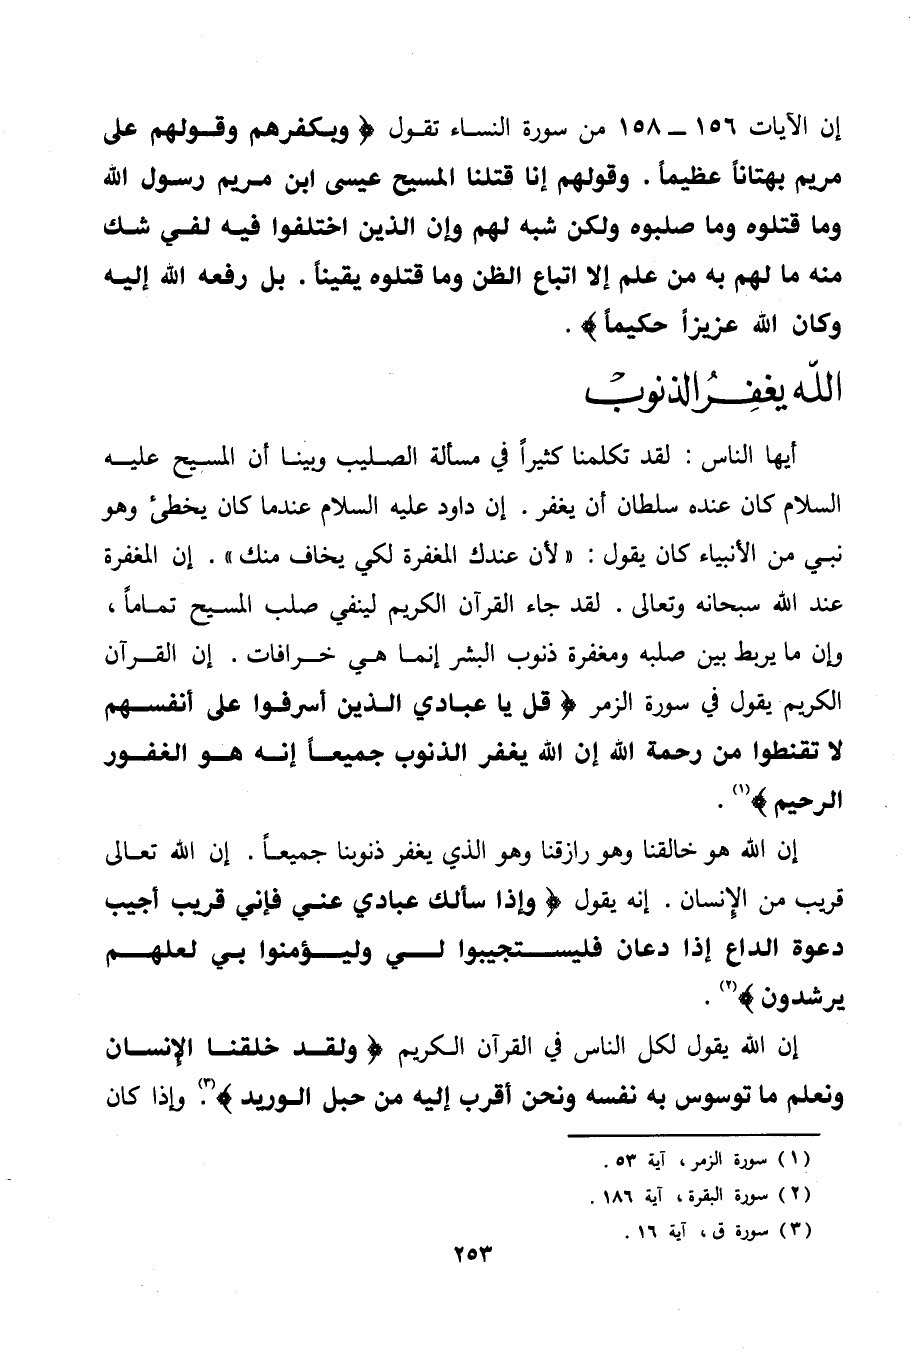 إن الآيات ١٥٦ ــ ١٥٨ من سورة النساء تقول ﴿ وبكفرهم وقولهم على
مريم بهتاناً عظيماً . وقولهم إنا قتلنا المسيح عيسى ابن مريم رسول الله
وما قتلوه وما صلبوه ولكن شبه لهم وإن الذين اختلفوا فيه لفي شك
منه ما لهم به من علم إلا اتباع الظن وما قتلوه يقيناً . بل رفعه الله إليه
وكان الله عزيزاً حكيماً ﴾ .
اللّه يغفِرُ الذنوبْ
أيها الناس : لقد تكلمنا كثيراً في مسألة الصليب وبينا أن المسيح عليه
السلام كان عنده سلطان أن يغفر . إن داود عليه السلام عندما كان يخطئ وهو
نبي من الأنبياء كان يقول : « لأن عندك المغفرة لكي يخاف منك » . إن المغفرة
عند الله سبحانه وتعالى . لقد جاء القرآن الكريم لينفي صلب المسيح تماماً ،
وإن ما يربط بين صلبه ومغفرة ذنوب البشر إنما هي خرافات . إن القرآن
الكريم يقول في سورة الزمر ﴿ قل يا عبادي الذين أسرفوا على أنفسهم
لا تقنطوا من رحمة الله إن الله يغفر الذنوب جميعاً إنه هو الغفور
الرحيم ﴾(١) .
إن الله هو خالقنا وهو رازقنا وهو الذي يغفر ذنوبنا جميعاً . إن الله تعالى
قريب من الإنسان . إنه يقول ﴿ وإذا سألك عبادي عني فإني قريب أجيب
دعوة الداع إذا دعان فليستجيبوا لي وليؤمنوا بي لعلهم
يرشدون ﴾(٢) .
إن الله يقول لكل الناس في القرآن الكريم ﴿ ولقد خلقنا الإنسان
ونعلم ما توسوس به نفسه ونحن أقرب إليه من حبل الوريد ﴾(٣). وإذا كان
(١) سورة الزمر ، آية ٥٣ .
(٢) سورة البقرة ، آية ١٨٦ .
(٣) سورة ق ، آية ١٦ .
٢٥٣